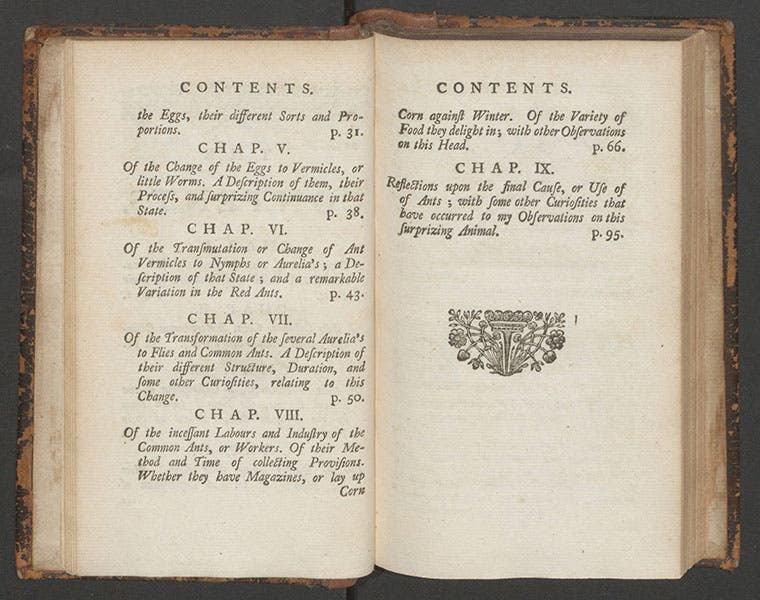 CONTENTS.
the Eggs, their different Sorts and Pro-
portions. p. 31.
CHAP. V.
Of the Change of the Eggs to Vermicles, or
little Worms. A Deſcription of them, their
Proceſs, and ſurprizing Continuance in that
State. p. 38.
CHAP. VI.
Of the Tranſmutation or Change of Ant
Vermicles to Nymphs or Aurelia's; a De-
ſcription of that State; and a remarkable
Variation in the Red Ants. p. 43.
CHAP. VII.
Of the Transformation of the ſeveral Aurelia's
to Flies and Common Ants. A Deſcription of
their different Structure, Duration, and
ſome other Curioſities, relating to this
Change. p. 50.
CHAP. VIII.
Of the inceſſant Labours and Induſtry of the
Common Ants, or Workers. Of their Me-
thod and Time of collecting Proviſions.
Whether they have Magazines, or lay up
Corn
CONTENTS.
Corn againſt Winter. Of the Variety of
Food they delight in; with other Obſervations
on this Head. p. 66.
CHAP. IX.
Reflections upon the final Cauſe, or Uſe of
of Ants; with ſome other Curioſities that
have occurred to my Obſervations on this
ſurprizing Animal. p. 95.